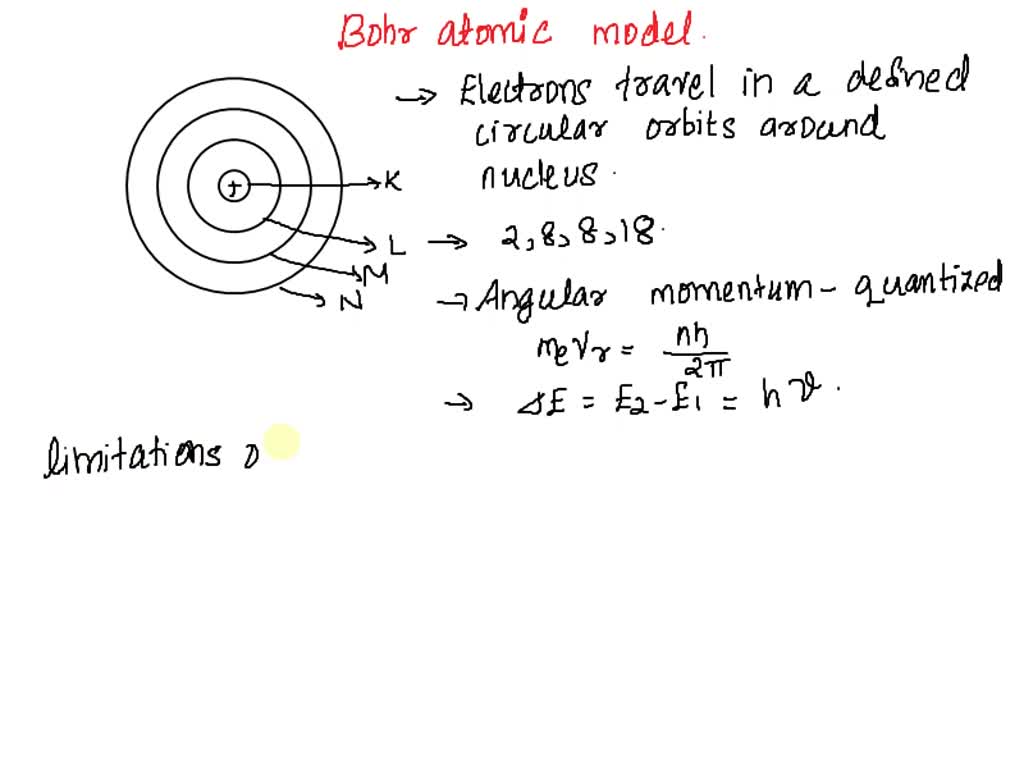 Bohr atomic model.
→ Electrons travel in a defined
circular orbits around
nucleus.
+
K
L → 2, 8, 8, 18.
M
N
→ Angular momentum - quantized
meVr = nh/2π
→ ΔE = E2 - E1 = hν.
limitations o